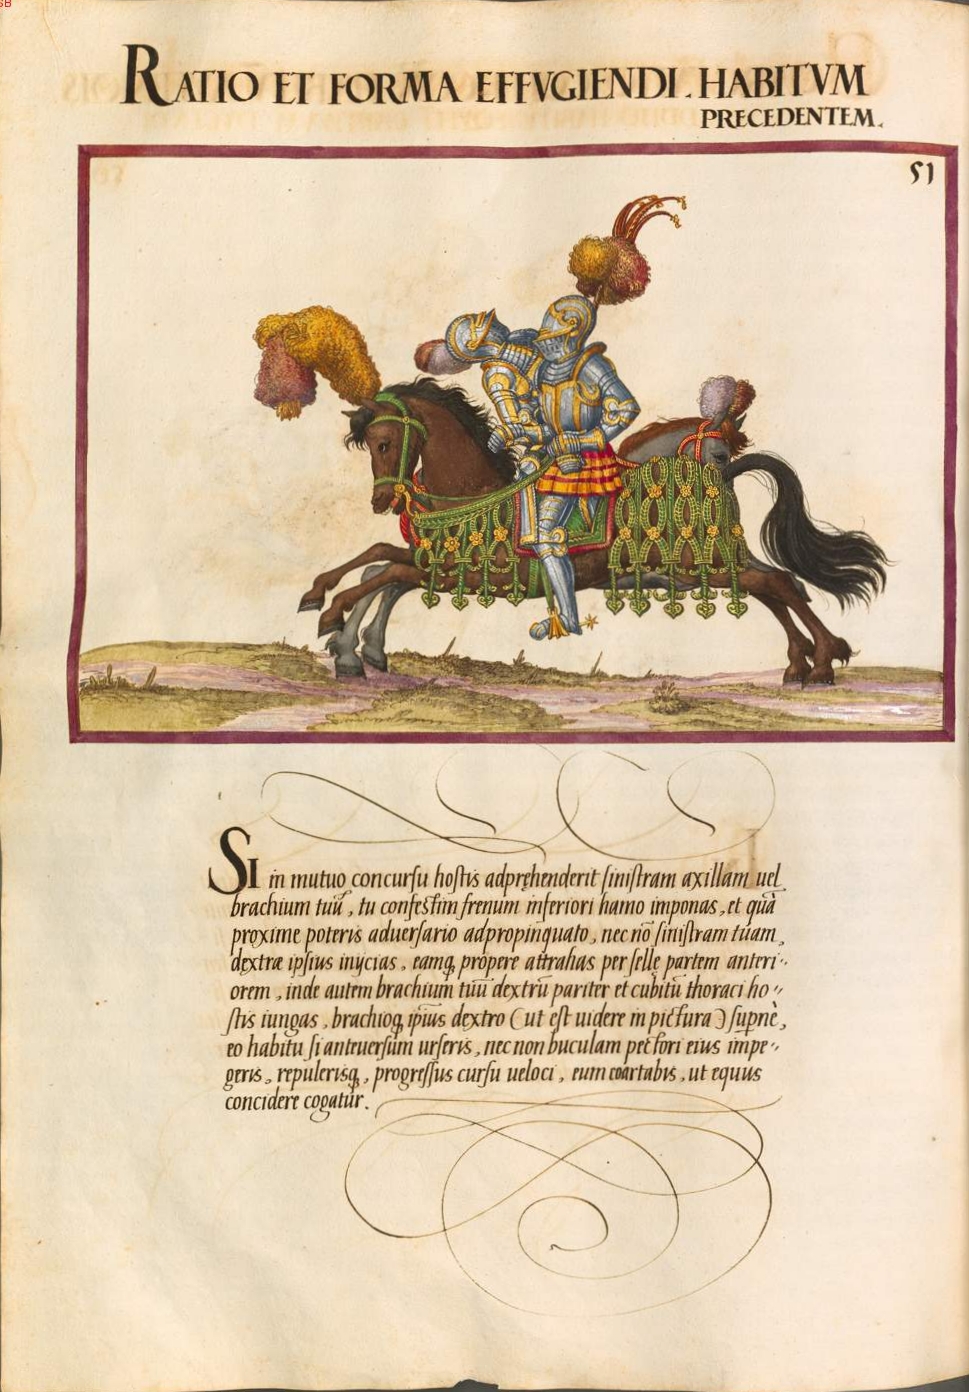 RATIO ET FORMA EFFVGIENDI . HABITVM
PRECEDENTEM .
51
SI in mutuo concurſu hoſtis adpręhenderit ſiniſtram axillam uel
brachium tuū , tu confeſtim frenum inferiori hamo imponas , et quā
proxime poteris aduerſario adpropinquato , nec nō ſiniſtram tuam ,
dextræ ipſius inijcias , eamq, propere attrahas per ſellę partem anteri-
orem , inde autem brachium tuū dextrū pariter et cubitū thoraci ho-
ſtis iungas , brachioq, ipſius dextro ( ut eſt uidere in pictura ) ſupnè ,
eo habitu ſi anteuerſum urſeris , nec non buculam pectori eius impe-
geris , repulerisq, , progreſſus curſu ueloci , eum coartabis , ut equus
concidere cogatur .